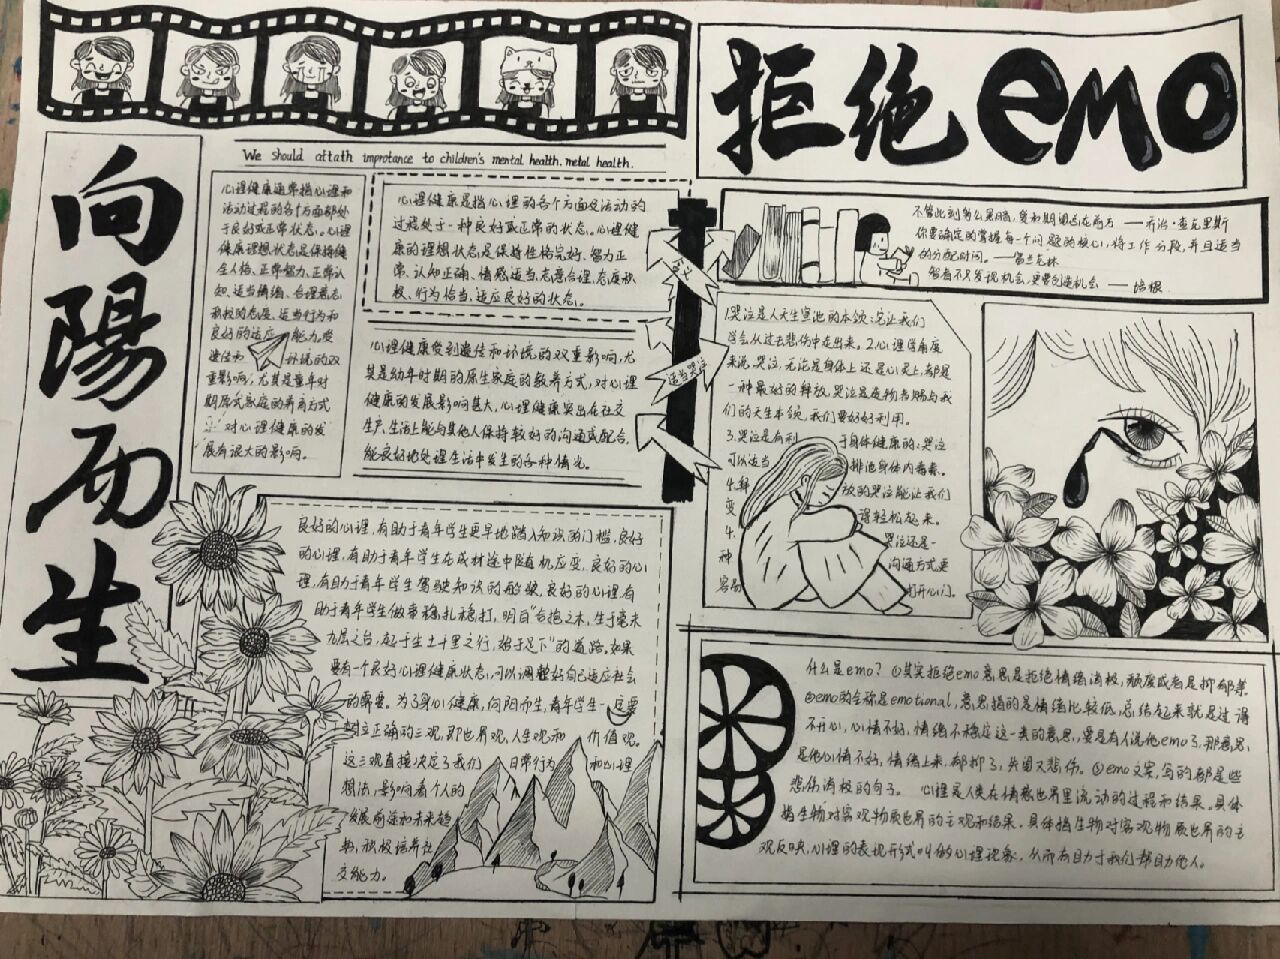 拒绝emo
向陽而生
We should attath improtance to children's mental health. metal health.
心理健康通常指心理和
活动过程的各个方面都处
于良好或正常状态。心理
健康理想状态是保持健
全人格、正常智力、正常认
知、适当情绪、合理意志
积极的态度、适当行为和
良好的适应能力。受
遗传和环境的双
重影响，尤其是童年时
期原式家庭的养育方式
对心理健康的发
展有很大的影响。
心理健康是指心理的各个方面及活动的
过程处于一种良好或正常的状态。心理健
康的理想状态是保持性格完好、智力正
常、认知正确、情感适当、志意合理、态度积
极、行为恰当、适应良好的状态。
心理健康受到遗传和环境的双重影响，尤
其是幼年时期的原生家庭的教养方式，对心理
健康的发展影响甚大，心理健康突出在社交
生产、生活上能与其他人保持较好的沟通或配合，
能良好地处理生活中发生的各种情况。
良好的心理，有助于青年学生更早地踏入知识的门槛，良好
的心理，有助于青年学生在成材途中随机应变，良好的心
理，有助于青年学生驾驶知识的船艘，良好的心理，有
助于青年学生做事稳扎稳打，明白"合抱之木，生于毫末
九层之台，起于垒土千里之行，始于足下"的道路。如果
要有一个良好心理健康状态，可以调整好自己适应社会
的需要。为了身心健康，向阳而生，青年学生一定要
树立正确的三观，即世界观、人生观和价值观。
这三观直接决定了我们日常行为和心理
想法，影响着个人的
发展前途和未来趋
势，积极培养社
交能力。
—乔治·查克里斯
你要确定的掌握每一个问题的核心，将工作分段，并且适当
的分配时间。—富兰克林
智者不只发现机会，更要创造机会 —培根
含义
适当哭泣
1.哭泣是人天生宣泄的本领：它让我们
学会从过去悲伤中走出来。2.心理学角度
来说，哭泣，无论是身体上还是心灵上，都是
一种最好的释放，哭泣是造物者赐与我
们的天生本领，我们要好好利用。
3.哭泣是有利于身体健康的：哭泣
可以适当排泄身体内毒素。
放的哭泣能让我们
变得轻松起来。
4.哭泣还是一
种沟通方式更
容易打开心门。
什么是emo？①其实拒绝emo意思是拒绝情绪消极，颓废或者是抑郁等
②emo的全称是emotional，意思指的是情绪比较低，总结起来就是过得
不开心，心情不好，情绪不稳定这一类的意思，要是有人说他emo了，那意思
是他心情不好，情绪上来，郁抑了，失困又悲伤。③emo文案，写的都是些
悲伤消极的句子。 心理是人类在情感世界里流动的过程和结果。具体
指生物对客观物质世界的主观和结果。具体指生物对客观物质世界的主
观反映，心理的表现形式叫做心理现象，从而有助于我们帮助他人。